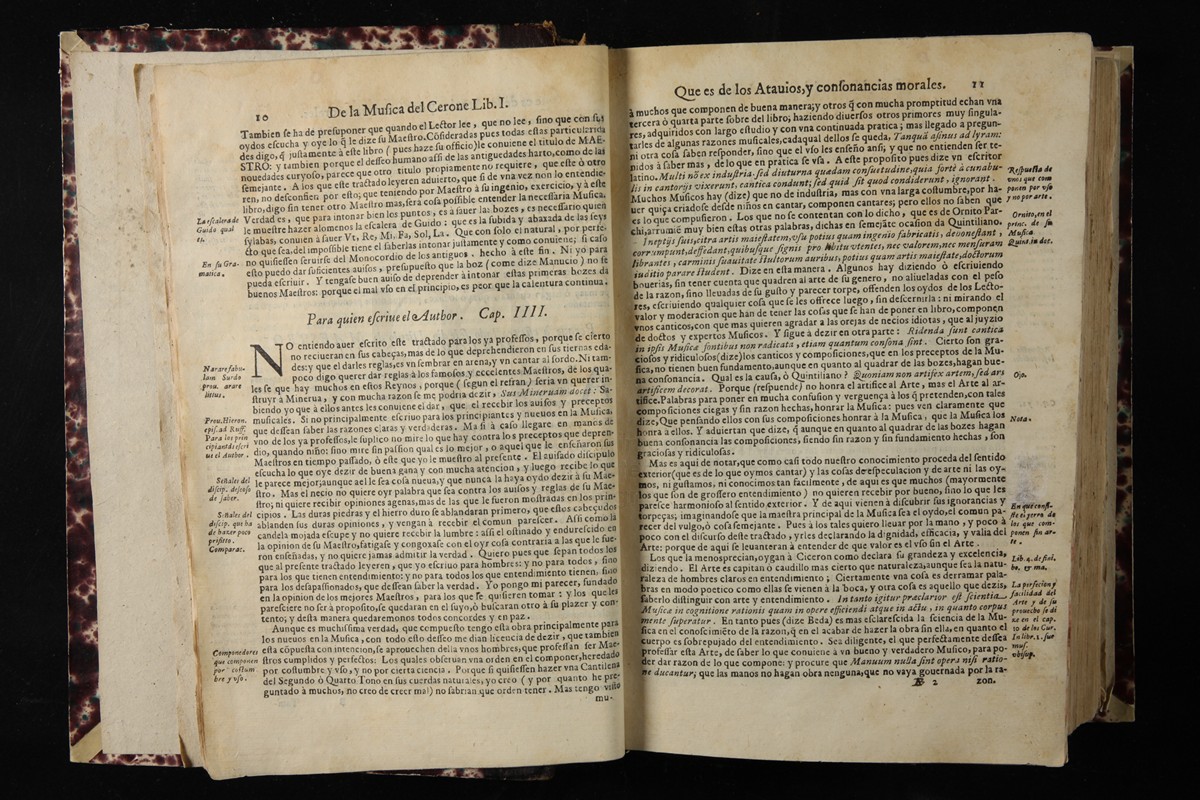 10
De la Musica del Cerone Lib. I.
Tambien se ha de presuponer que quando el Lector lee, que no lee, sino que con sus
oydos escucha y oye lo q̃ le dize su Maestro. Cõsideradas pues todas estas particularida
des digo, q̃ justamente à este libro (pues haze su officio) le conuiene el titulo de MAE-
STRO: y tambien porque el desseo humano assi de las antiguedades harto, como de las
nouedades curyoso, parece que otro titulo propiamente no requiere, que este ò otro
semejante. A los que este tractado leyeren aduierto, que si de vna vez non lo entendie-
ren, no desconfien por esto; que teniendo por Maestro à su ingenio, exercicio, y à este
libro, digo sin tener otro Maestro mas, será cosa possible entender la necessaria Musica.
La escalera de
Guido qual
es.
Verdad es, que para intonar bien los puntos, es à sauer las bozes, es necessario quien
le muestre hazer alomenos la escalera de Guido: que es la subida y abaxada de las seys
sylabas, conuien à sauer Vt, Re, Mi, Fa, Sol, La. Que con solo el natural, por perfe-
cto que sea, del impossible tiene el saberlas intonar justamente y como conuiene; si caso
no quisiessen seruirse del Monocordio de los antiguos, hecho à este fin. Ni yo para
En su Gra-
matica.
esto puedo dar suficientes auisos, presupuesto que la boz (come dize Manucio) no se
pueda escriuir. Y tengase buen auiso de deprender à intonar estas primeras bozes da
buenos Maestros: porque el mal vso en el principio, es peor que la calentura continua.
Para quien escriue el Author. Cap. IIII.
NO entiendo auer escrito este tractado para los ya professos, porque se cierto
no reciueran en sus cabeças, mas de lo que deprehendieron en sus tiernas eda-
des: y que el darles reglas, es vn sembrar en arena, y vn cantar al sordo. Ni tam-
Narare fabu-
lam Surdo
prou. arare
littus.
poco digo querer dar reglas à los famosos y eccelentes Maestros, de los qua-
les se que hay muchos en estos Reynos, porque (segun el refran) seria vn querer in-
struyr a Minerua, y con mucha razon se me podria dezir, Sus Mineruam docet. Sa-
biendo yo que à ellos antes les conuiene el dar, que el recebir los auisos y preceptos
musicales. Si no principalmente escriuo para los principiantes y nueuos en la Musica,
Prou. Hieron.
epis. ad Ruff.
Para los prin
cipiantes escri
ue el Author.
que dessean saber las razones claras y verdaderas. Ma si à caso llegare en manos de
vno de los ya professos, le suplico no mire lo que hay contra los preceptos que depren-
dio, quando niño: sino mire sin passion qual es lo mejor, o aquel que le enseñaron sus
Maestros en tiempo passado, ò este que yo le muestro al presente. El auisado discipulo
escucha lo que oye dezir de buena gana y con mucha atencion, y luego recibe lo que
Señales del
discip. desseoso
de saber.
le parece mejor; aunque aél le sea cosa nueua, y que nunca la haya oydo dezir à su Mae-
stro. Mas el necio no quiere oyr palabra que sea contra los auisos y reglas de su Mae-
stro; ni quiere recibir opiniones agenas, mas de las que le fueron mostradas en los prin-
Señales del
discip. que ha
de hazer poco
profitto.
Comparat.
cipios. Las duras piedras y el hierro duro se ablandaran primero, que estos cabeçudos
ablanden sus duras opiniones, y vengan à recebir el comun parescer. Assi como la
candela mojada escupe y no quiere recebir la lumbre: assi el ostinado y endurescido en
la opinion de su Maestro, fatigase y congoxase con el oyr cosa contraria a las que le fue-
ron enseñadas, y no quiere jamas admitir la verdad. Quiero pues que sepan todos los
que al presente tractado leyeren, que yo escriuo para hombres: y no para todos, sino
para los que tienen entendimiento: y no para todos los que entendimiento tienen, sino
para los desapassionados, que dessean saber la verdad. Yo pongo mi parecer, fundado
en la opinion de los mejores Maestros, para los que se quisieren tomar: y los que les
paresciere no ser à proposito, se quedaran en el suyo, ò buscaran otro à su plazer y con-
tento; y desta manera quedaremos todos concordes y en paz.
Aunque es muchissima verdad, que compuesto tengo esta obra principalmente para
los nueuos en la Musica, con todo esto desseo me dian licencia de dezir, que tambien
esta cõpuesta con intencion, se aprouechen della vnos hombres, que professan ser Mae-
Componedores
que componen
por costum
bre y vso.
stros cumplidos y perfectos. Los quales obseruan vna orden en el componer, heredado
por costumbre y vso, y no por cierta ciencia. Porque si quisiessen hazer vna Cantilena
del Segundo ò Quarto Tono en sus cuerdas naturales, yo creo (y por quanto he pre-
guntado à muchos, no creo de creer mal) no sabrian que orden tener. Mas tengo visto
mu-
Que es de los Atauios, y consonancias morales.
11
à muchos que componen de buena manera; y otros q̃ con mucha promptitud echan vna
tercera ò quarta parte sobre del libro; haziendo diuersos otros primores muy singula-
res, adquiridos con largo estudio y con vna continuada pratica; mas llegado a pregun-
tarles de algunas razones musicales, cadaqual dellos se queda, Tanquã asinus ad lyram:
ni otra cosa saben responder, sino que el vso les enseño ansi; y que no entienden ser te-
nidos à saber mas, de lo que en pratica se vsa. A este proposito pues dize vn escritor
Respuesta de
vnos que com
ponen por vso
y no per arte.
latino. Multi nõ ex industria, sed diuturna quadam consuetudine, quia fortè à cunabu-
lis in cantorijs vixerunt, cantica condunt; sed quid sit quod condiderunt, ignorant.
Muchos Musicos hay (dize) que no de industria, mas con vna larga costumbre, por ha-
uer quiça criadose desde niños en cantar, componen cantares; pero ellos no saben que
es lo que compusieron. Los que no se contentan con lo dicho, que es de Ornito Par-
Ornito, en el
princ. de su
Musica.
Quint. in dec.
chi, arrumiè muy bien estas otras palabras, dichas en semejãte ocasion da Quintiliano.
Ineptijs suis, citra artis maiestatem, vsu potius quam ingenio fabricatis, deonestant,
corrumpunt, deffedant, quibusque signis pro libitu vtentes, nec valorem, nec mensuram
librantes, carminis suauitate stultorum auribus, potius quam artis maiestate, doctorum
iuditio parare student. Dize en esta manera. Algunos hay diziendo ò escriuiendo
bouerias, sin tener cuenta que quadren al arte de su genero, no aliueladas con el peso
de la razon, sino lleuadas de su gusto y parecer torpe, offenden los oydos de los Lecto-
res, escriuiendo qualquier cosa que se les offrece luego, sin descernirla: ni mirando el
valor y moderacion que han de tener las cosas que se han de poner en libro, componen
vnos canticos, con que mas quieren agradar a las orejas de necios idiotas, que al juyzio
de doctos y expertos Musicos. Y sigue a dezir en otra parte: Ridenda sunt cantica
in ipsis Musicæ fontibus non radicata, etiam quantum consona sint. Cierto son gra-
ciosos y ridiculosos (dize) los canticos y composiciones, que en los preceptos de la Mu-
sica, no tienen buen fundamento, aunque en quanto al quadrar de las bozes, hagan bue-
na consonancia. Qual es la causa, ò Quintiliano? Quoniam non artifex artem, sed ars
Ojo.
artificem decorat. Porque (respuende) no honra el artifice al Arte, mas el Arte al ar-
tifice. Palabras para poner en mucha confusion y verguença à los q̃ pretenden, con tales
composiciones ciegas y sin razon hechas, honrar la Musica: pues ven claramente que
dize, Que pensando ellos con sus composiciones honrar à la Musica, que la Musica los
Nota.
honra a ellos. Y aduiertan que dize, q̃ aunque en quanto al quadrar de las bozes hagan
buena consonancia las composiciones, siendo sin razon y sin fundamento hechas, son
graciosas y ridiculosas.
Mas es aqui de notar, que como casi todo nuestro conocimiento proceda del sentido
exterior (que es de lo que oymos cantar) y las cosas de especulacion y de arte ni las oy-
mos, ni gustamos, ni conocimos tan facilmente, de aqui es que muchos (mayormente
los que son de grossero entendimiento) no quieren recibir por bueno, sino lo que les
En que consi-
ste el yerro de
los que com-
ponen sin ar-
te.
paresce harmonioso al sentido, exterior. Y de aqui vienen à discubrir sus ignorancias y
torpeças; imaginandose que la maestra principal de la Musica sea el oydo, el comun pa-
recer del vulgo, ò cosa semejante. Pues à los tales quiero lleuar por la mano, y poco à
poco con el discurso deste tractado, yrles declarando la dignidad, efficacia, y valia del
Arte: porque de aqui se leuanteran à entender de que valor es el vso sin el Arte.
Los que la menosprecian, oygan à Ciceron como declara su grandeza y excelencia,
Lib. 4. de fini.
bo. & ma.
diziendo. El Arte es capitan ò caudillo mas cierto que naturaleza, aunque sea la natu-
raleza de hombres claros en entendimiento; Ciertamente vna cosa es derramar pala-
La pirfecion y
facilidad del
Arte y de su
prouecho se di
ze en el cap.
10 de las Cur.
In libr. 1. sue
mus.
vbi sup.
bras en modo poetico como ellas se vienen à la boca, y otra cosa es aquello que dezis,
saberlo distinguir con arte y entendimiento. In tanto igitur præclarior est scientia
Musicæ in cognitione rationis quam in opere efficiendi atque in actu, in quantum corpus
mente superatur. En tanto pues (dize Beda) es mas esclarescida la sciencia de la Mu-
sica en el conoscimiẽto de la razon, q̃ en el acabar de hazer la obra sin ella, en quanto el
cuerpo es sobrepujado del entendimiento. Sea diligente, el que perfectamente dessea
professar esta Arte, de saber lo que conuiene à vn bueno y verdadero Musico, para po-
der dar razon de lo que compone: y procure que Manuum nulla sint opera nisi ratio-
ne ducantur; que las manos no hagan obra nenguna, que no vaya gouernada por la ra-
B 2
zon.